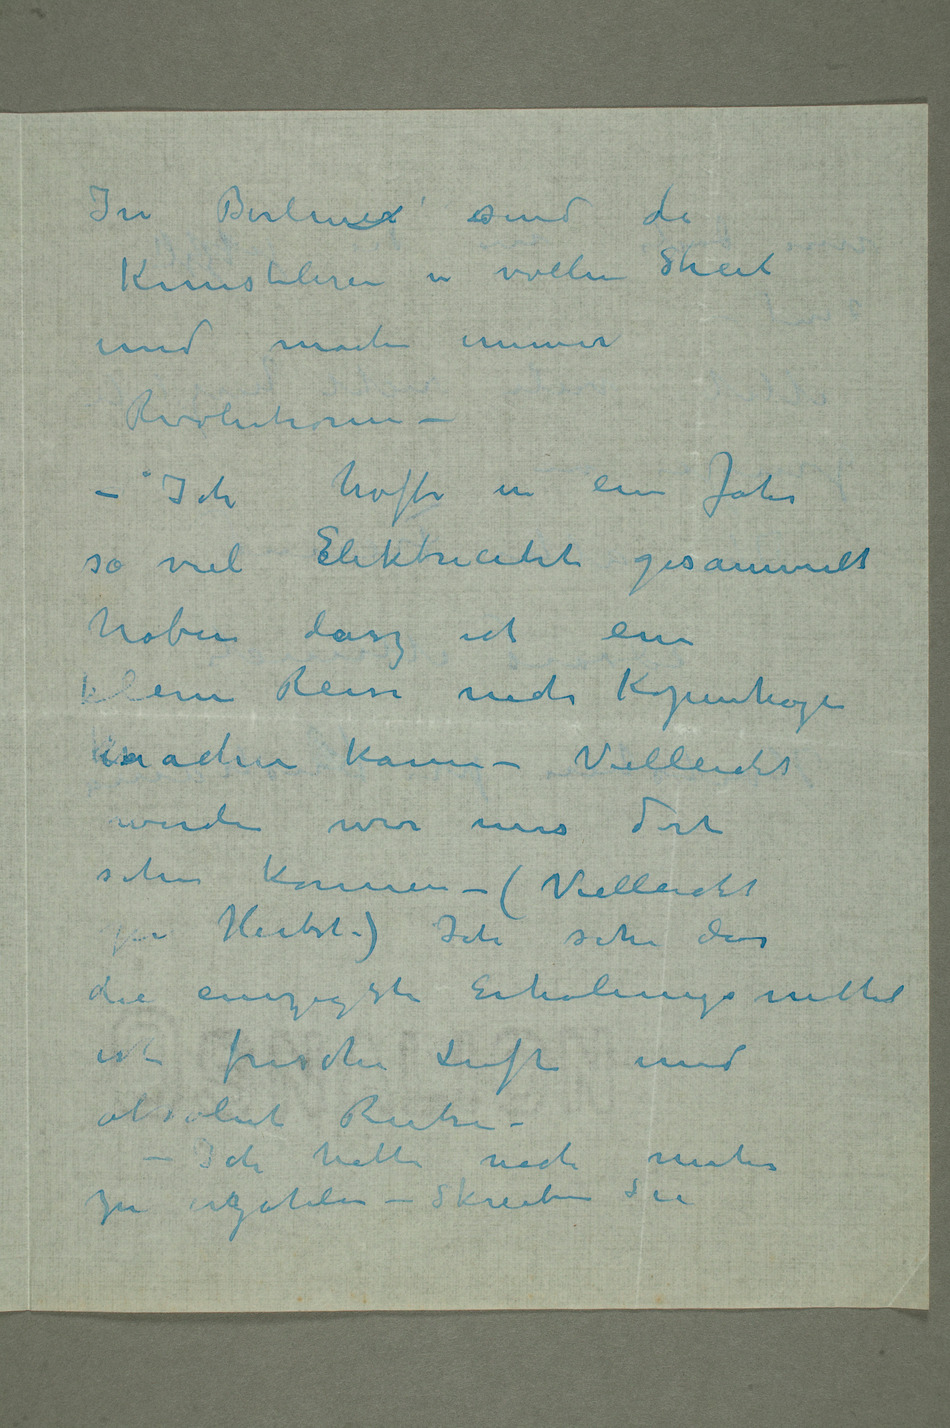 In Berlin sind die
Künstleren in vollen Streit
und machen immer
Revolutionen –
– Ich hoffe in ein Jahr
so viel Elektricität gesammelt
haben dasz ich ein
kleine Reise nach Kopenhagen
machen kann – Vielleicht
werden wir uns dort
sehen können – (Vielleicht
Herbst.) Ich sehe das
die einzigste Erholungsmittel
ist frische Luft und
absolut Ruhe –
– Ich hatte noch mehr
zu erzählen – Skreiben Sie